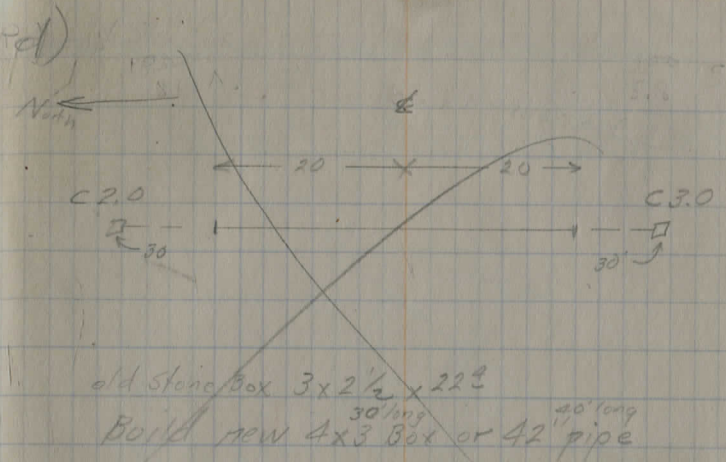 d)
North
℄
20 20
C 2.0 C 3.0
30 30'
old Stone Box 3 x 2 1/2 x 22
30' long 40' long
Build new 4x3 Box or 42" pipe